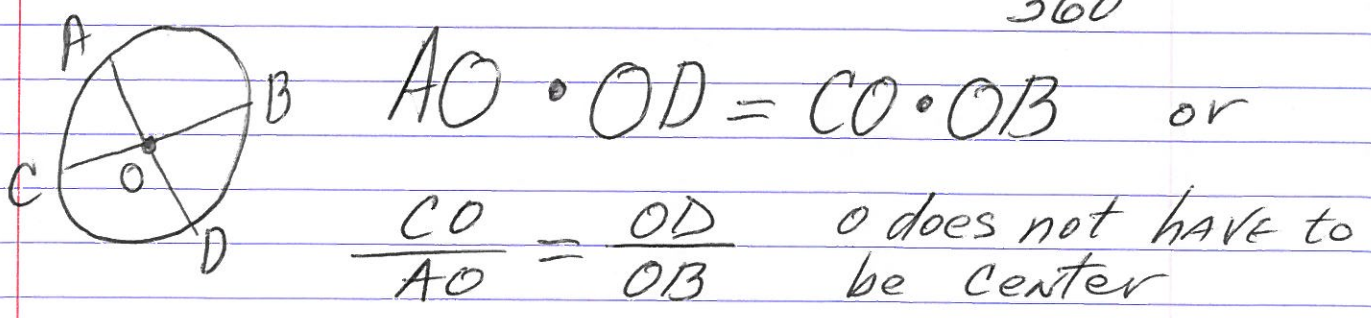 360
A
B
AO • OD = CO • OB or
C
O
D
CO/AO = OD/OB O does not HAVE to
be center